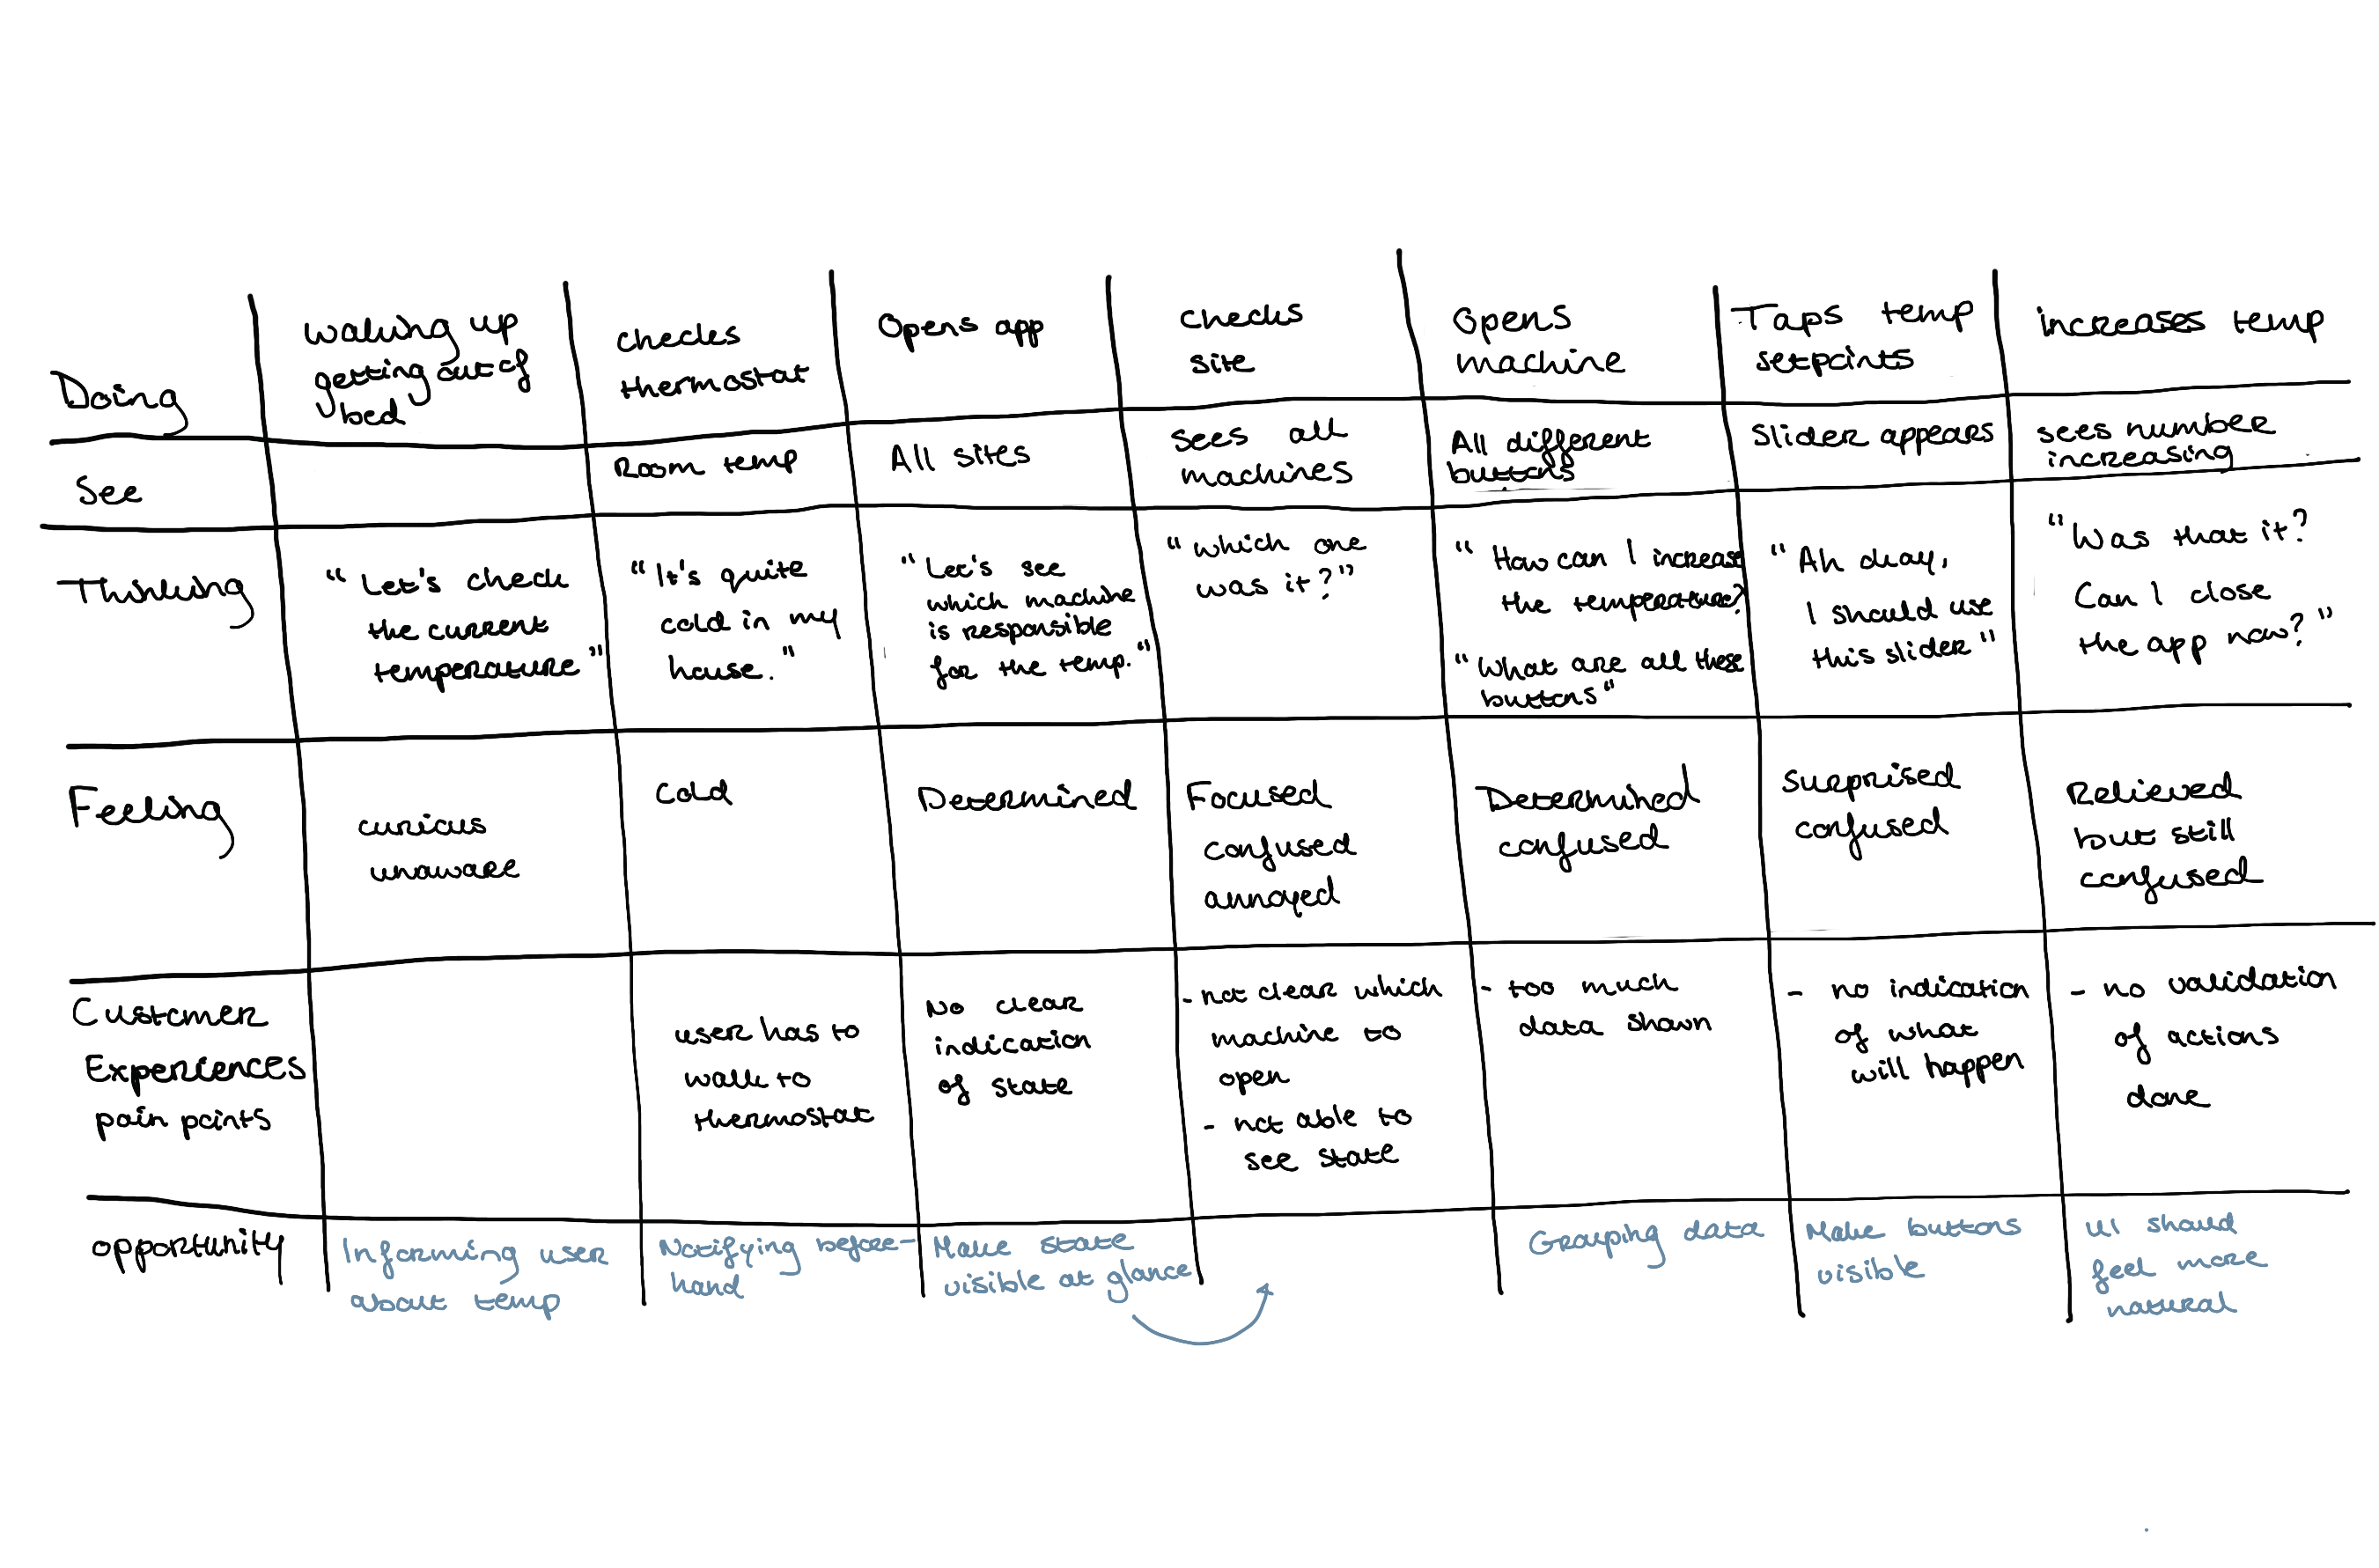 Doing
waking up
getting out of
bed
checks
thermostat
Opens app
checks
site
Opens
machine
Taps temp
setpoints
increases temp
See
Room temp
All sites
Sees all
machines
All different
buttons
Slider appears
sees number
increasing
Thinking
"Let's check
the current
temperature"
"It's quite
cold in my
house."
"Let's see
which machine
is responsible
for the temp."
"which one
was it?"
"How can I increase
the temperature?
"What are all these
buttons"
"Ah okay,
I should use
this slider"
"Was that it?
Can I close
the app now?"
Feeling
curious
unaware
cold
Determined
Focused
confused
annoyed
Determined
confused
Surprised
confused
Relieved
but still
confused
Customer
Experiences
pain points
user has to
walk to
thermostat
No clear
indication
of state
- not clear which
machine to
open
- not able to
see state
- too much
data shown
- no indication
of what
will happen
- no validation
of actions
done
opportunity
Informing user
about temp
Notifying before-
hand
Make state
visible at glance
Grouping data
Make buttons
visible
UI should
feel more
natural